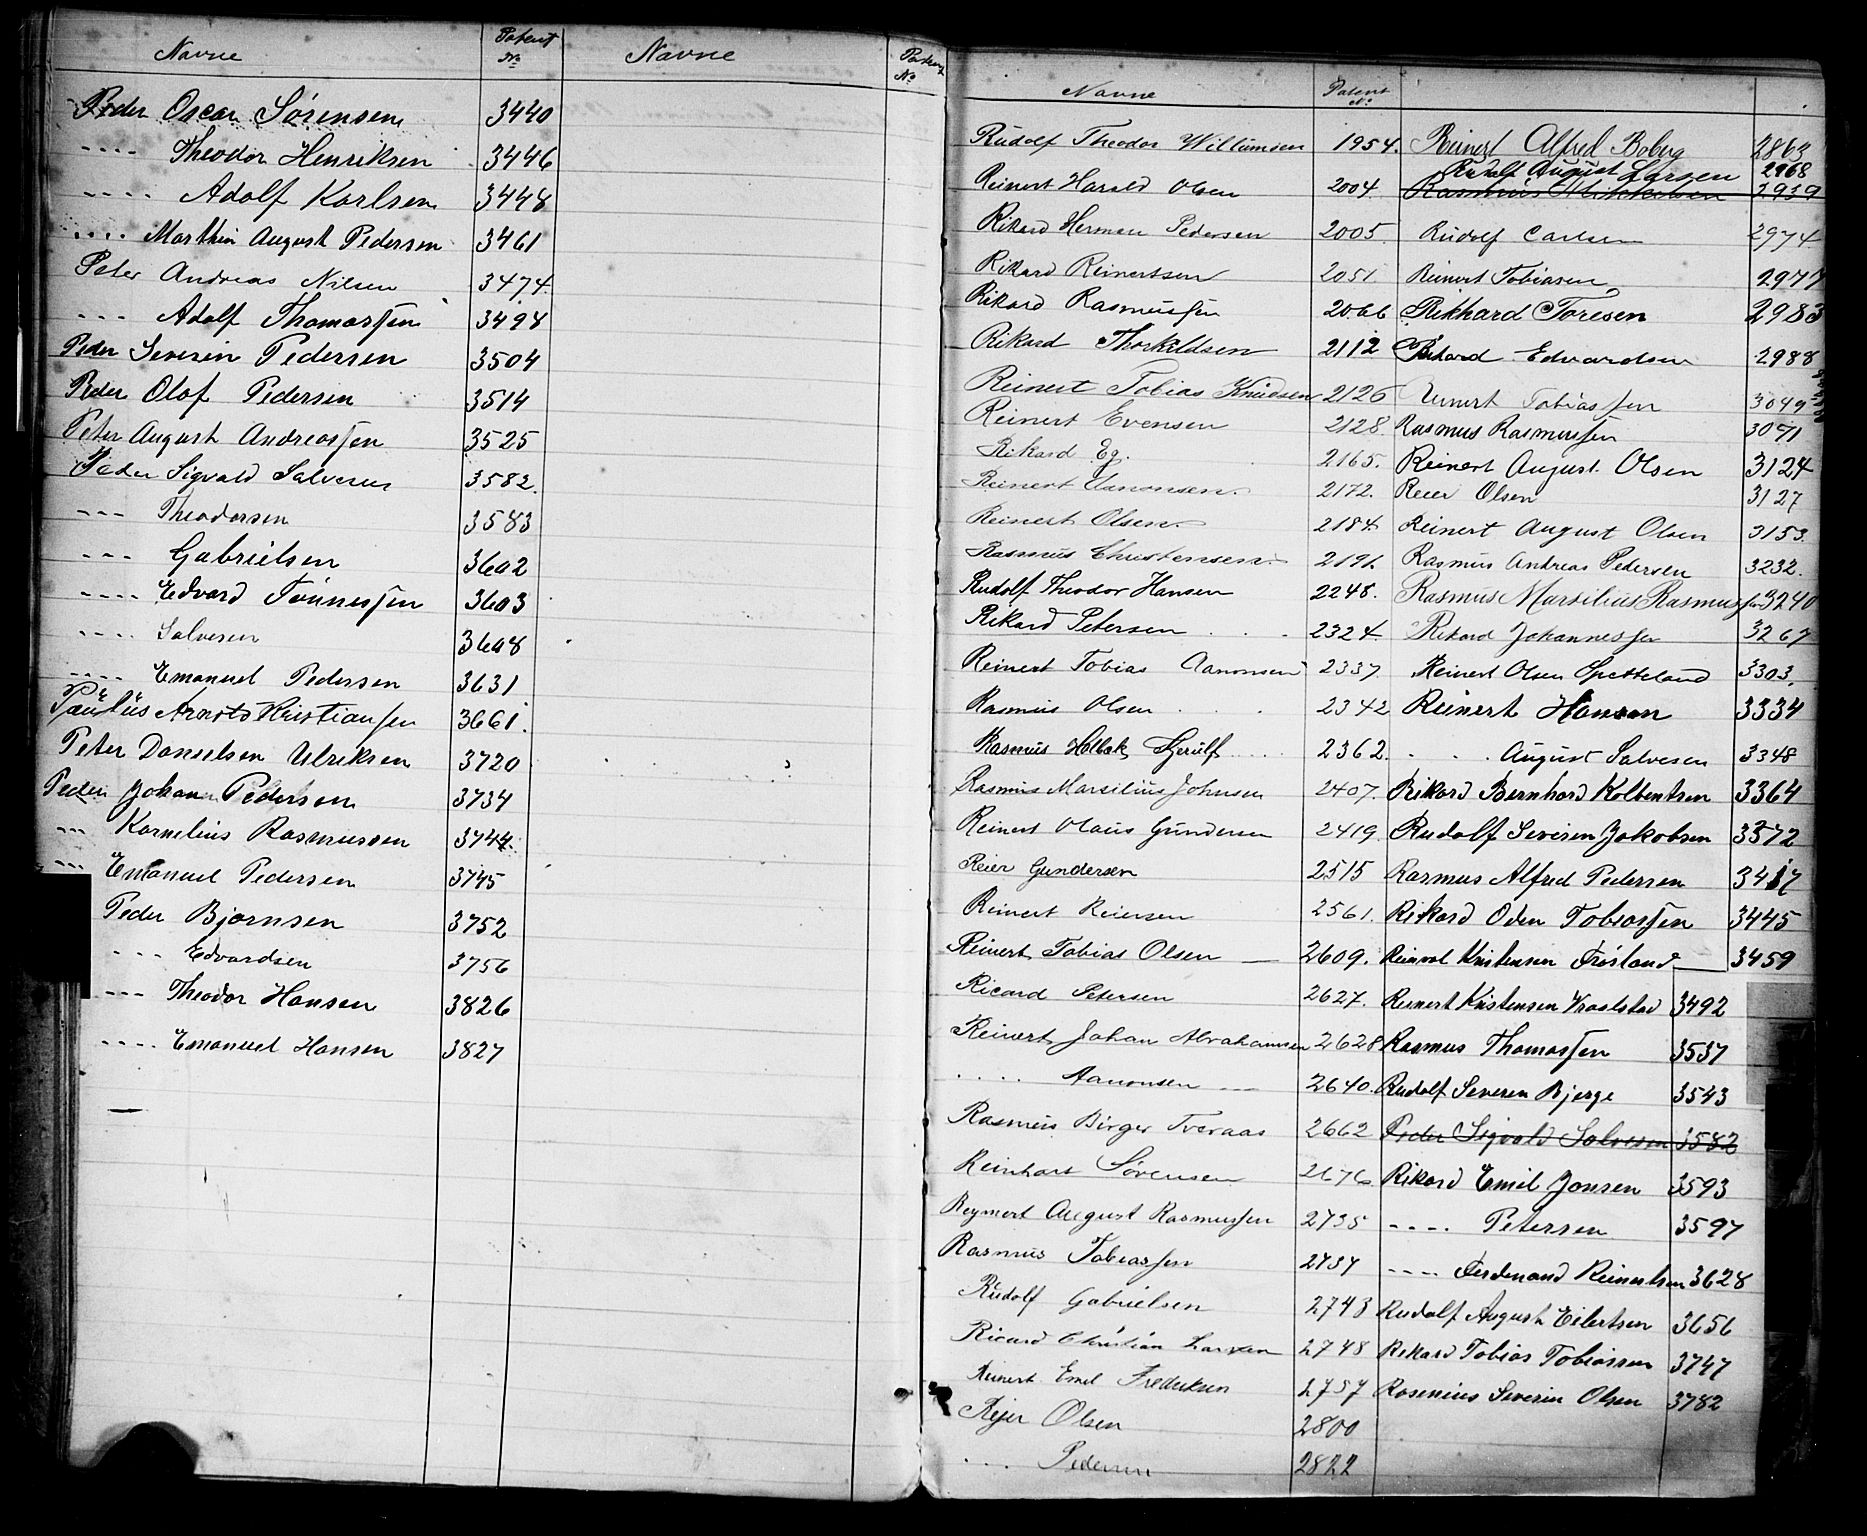 Navne Patent No
Peder Oscar Sørensen 3440
---- Theodor Henriksen 3446
---- Adolf Karlsen 3448
---- Marthin August Pedersen 3461
Peter Andreas Nilsen 3474
--- Adolf Thomassen 3498
Peder Severin Pedersen 3504
Peder Olaf Pedersen 3514
Peter August Andreassen 3525
Peder Sigvald Salvesen 3582.
--- Theodorsen 3583
--- Gabrielsen 3602
---- Edvard Tönnessen 3603
---- Salvesen 3608
---- Emanuel Pedersen 3631
Paulus Arnts Kristiansen 3661.
Peter Danielsen Ulriksen 3720
Peder Johan Pedersen 3734
--- Kornelius Rasmussen 3744.
--- Emanuel Pedersen 3745
Peder Bjørnsen 3752
--- Edvardsen 3756
--- Theodor Hansen 3826
---- Emanuel Hansen 3827
Navne Patent No
Navne Patent No
Rudolf Theodor Willumsen 1954.
Reinert Harald Olsen 2004.
Rikard Herman Pedersen 2005.
Rikard Reinertsen 2051
Rikard Rasmussen 2066
Rikard Thorkildsen 2112
Reinert Tobias Knudsen 2126
Reinert Evensen 2128.
Rikard Eg. 2165.
Reinert Aanonsen. 2172.
Reinert Olsen. 2184.
Rasmus Christensen. 2191.
Rudolf Theodor Hansen 2248.
Rikard Petersen 2324
Reinert Tobias Aanonsen 2337.
Rasmus Olsen 2342
Rasmus Holbek Gjerulf 2362.
Rasmus Marsilius Johnsen 2407.
Reinert Olaus Gundersen 2419
Reier Gundersen 2515
Reinert Reiersen 2561.
Reinert Tobias Olsen 2609.
Ricard Petersen 2627.
Reinert Johan Abrahamsen 2628
.... Aanonsen 2640.
Rasmus Birger Tveraas 2662
Reinhart Sørensen 2676
Reymert August Rasmussen 2735
Rasmus Tobiassen 2737
Rudolf Gabrielsen 2743
Ricard Christian Larsen 2748
Reinert Emil Fredriksen 2757
Rejer Olsen 2800
.... Pedersen 2822
Reinert Alfred Boberg 2863
Rudolf August Larsen 2968
Rasmus Mikkelsen 2939
Rudolf Carlsen 2974
Reinert Tobiasen 2977
Rikhard Toresen 2983
Rikard Edvardsen 2988
Reinert Tobiassen 3049
Rasmus Rasmussen 3071
Reinert August Olsen 3124
Reier Olsen 3127
Reinert August Olsen 3153.
Rasmus Andreas Pedersen 3232.
Rasmus Marsilius Rasmussen 3240
Rikard Johannessen 3267
Reinert Olsen Spetteland 3303.
Reinert Hansen 3334
. . August Salvesen 3348
Rikard Bernhard Kolbentsen 3364
Rudolf Severin Jakobsen 3372
Rasmus Alfred Pedersen 3417
Rikard Oden Tobiassen 3445
Reinert Kristensen Frøsland 3459
Reinert Kristensen Vraalstad 3492
Rasmus Thomassen 3537
Rudolf Severin Bjerge 3543
Peder Sigvald Salvesen 3582
Rikard Emil Jonsen 3593
---- Petersen 3597
---- Ferdinand Reinertsen 3628
Rudolf August Eilertsen 3656
Rikard Tobias Tobiassen 3747
Rosenius Severin Olsen 3782